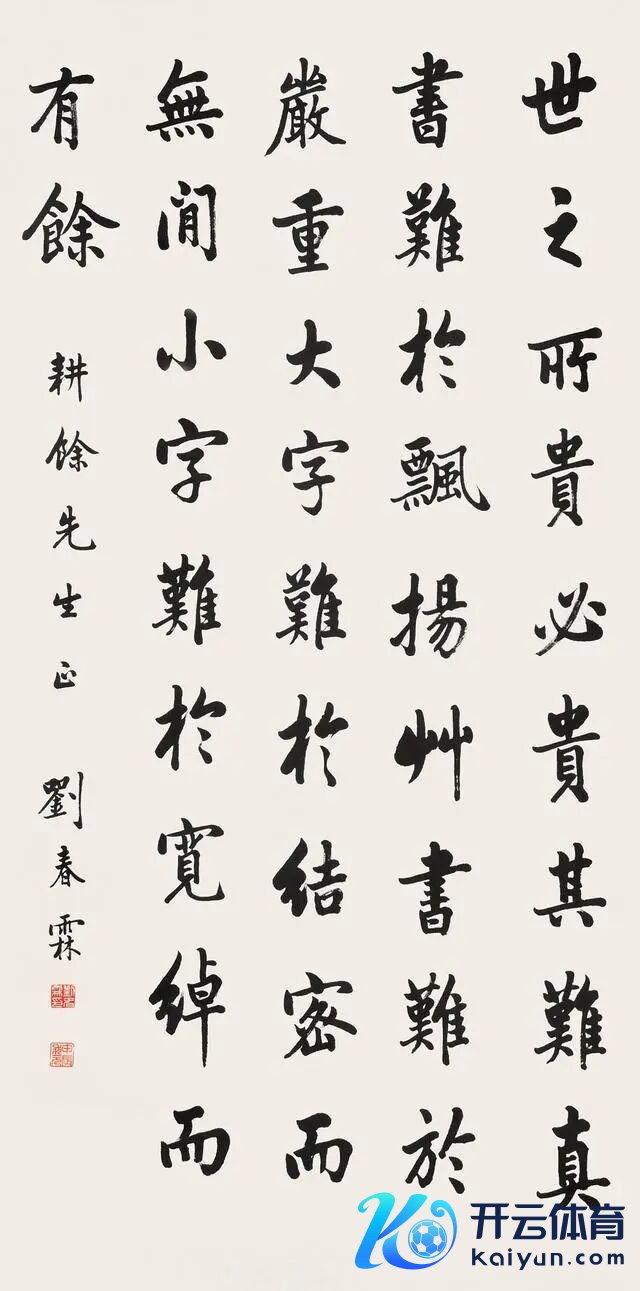 世之所貴必貴其難真
書難於飄揚艸書難於
嚴重大字難於結密而
無閒小字難於寬綽而
有餘
耕餘先生正
劉春霖
开云体育
kaiyun.com